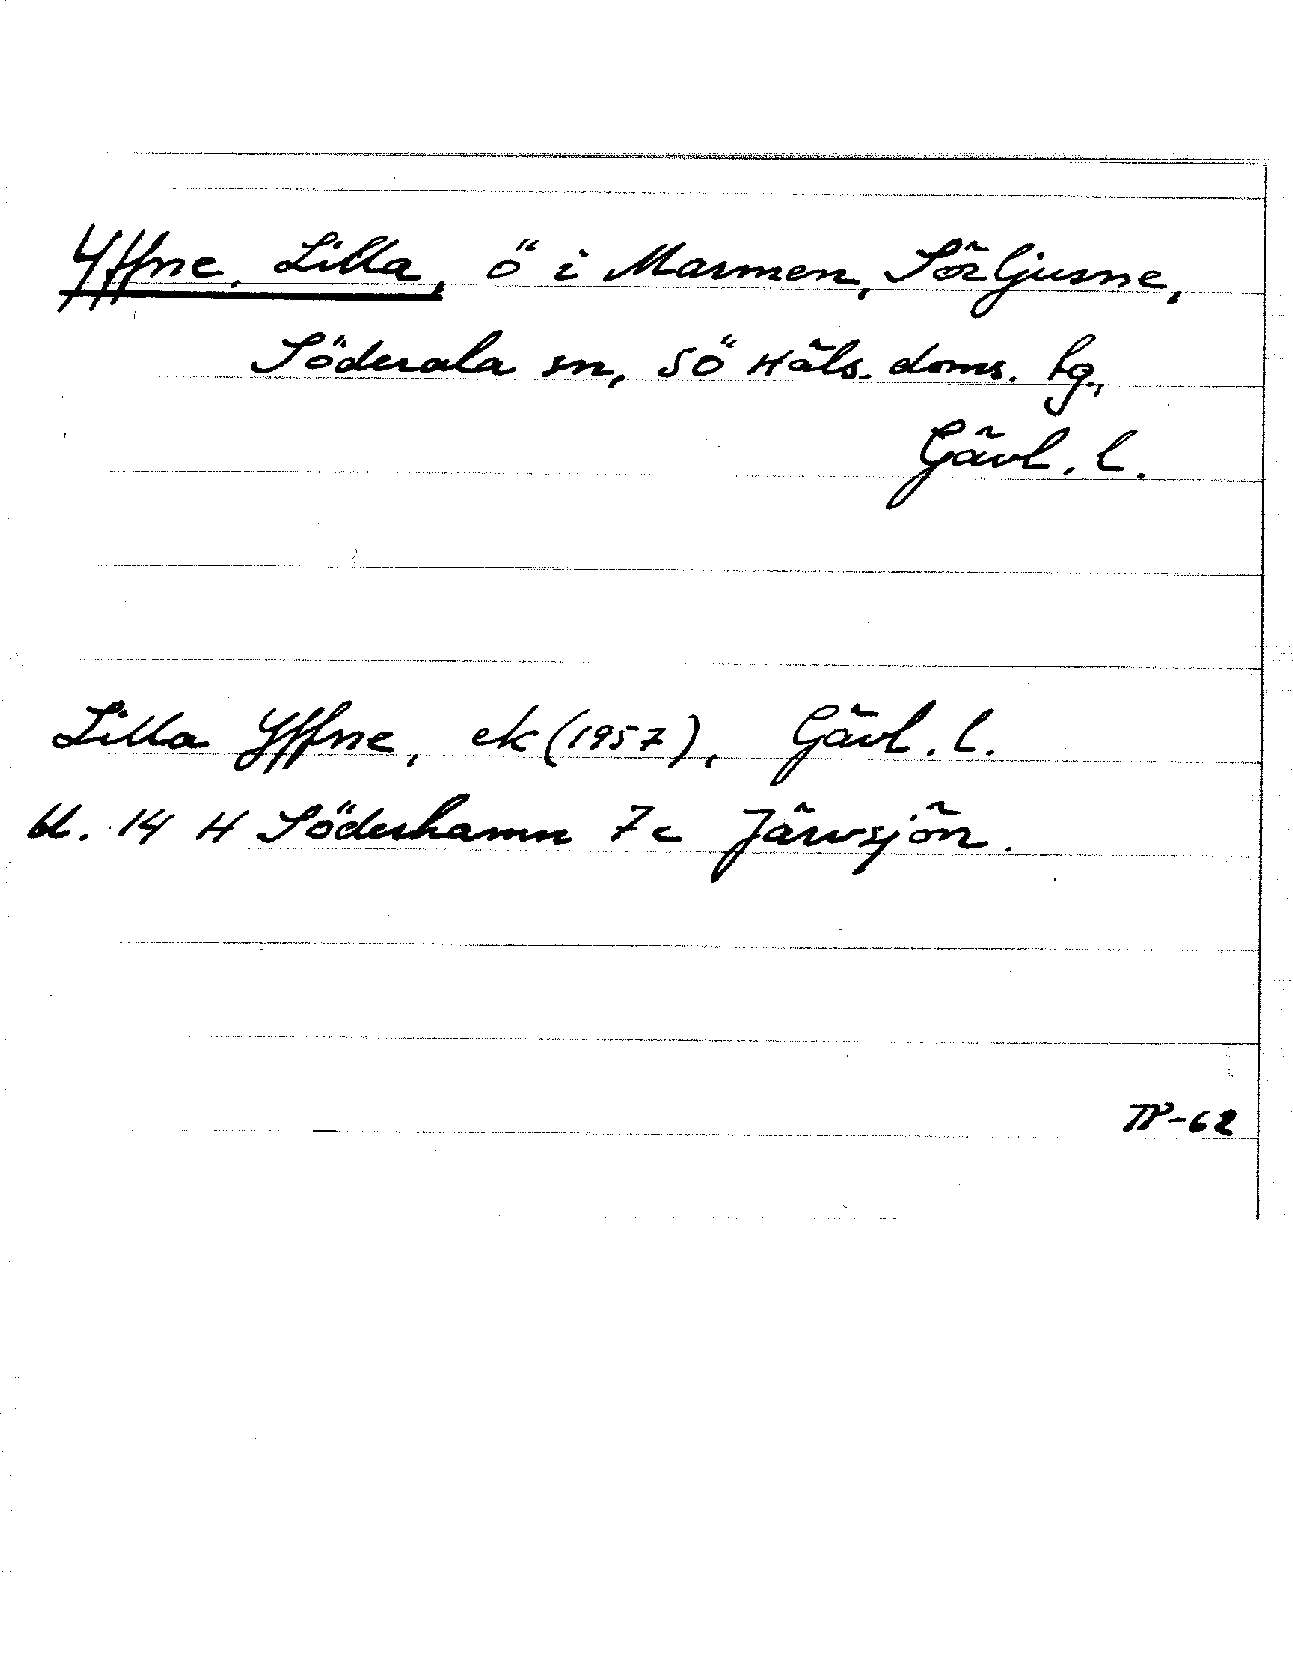 Yffne, Lilla, ö i Marmen, Sörljusne,
Söderala sn, SÖ Häls. doms. tg.,
Gävl. l.
Lilla Yffne, ek (1957), Gävl. l.
bl. 14 H Söderhamn 7c Järvsjön.
TP-62